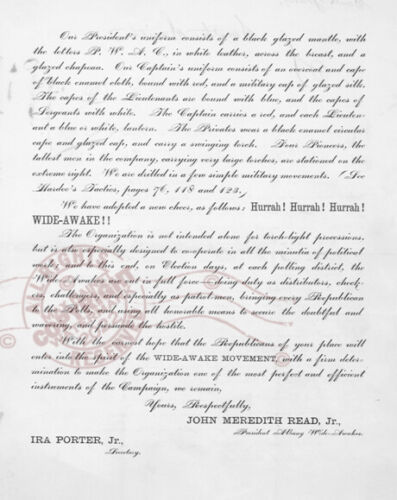 Our President's uniform consists of a black glazed mantle, with
the letters P. W. A. C., in white leather, across the breast, and a
glazed chapeau. Our Captain's uniform consists of an overcoat and cape
of black enamel cloth, bound with red, and a military cap of glazed silk.
The capes of the Lieutenants are bound with blue, and the capes of
Sergeants with white. The Captain carries a red, and each Lieuten-
ant a blue or white, lantern. The Privates wear a black enamel circular
cape and glazed cap, and carry a swinging torch. Four Pioneers, the
tallest men in the company, carrying very large torches, are stationed on the
extreme right. We are drilled in a few simple military movements. (See
Hardee's Tactics, pages 76, 118 and 123.)
We have adopted a new cheer, as follows: Hurrah! Hurrah! Hurrah!
WIDE-AWAKE!!
The Organization is not intended alone for torch-light processions,
but is also especially designed to co-operate in all the minutia of political
works, and to this end, on Election days, at each polling district, the
Wide-Awakes are out in full force — doing duty as distributors, check-
ers, challengers, and especially as patrol men, bringing every Republican
to the Polls, and using all honorable means to secure the doubtful and
wavering, and persuade the hostile.
With the earnest hope that the Republicans of your place will
enter into the spirit of the WIDE-AWAKE MOVEMENT, with a firm deter-
mination to make the Organization one of the most perfect and efficient
instruments of the Campaign, we remain,
Yours, Respectfully,
JOHN MEREDITH READ, Jr.,
President Albany Wide-Awakes.
IRA PORTER, Jr.,
Secretary.